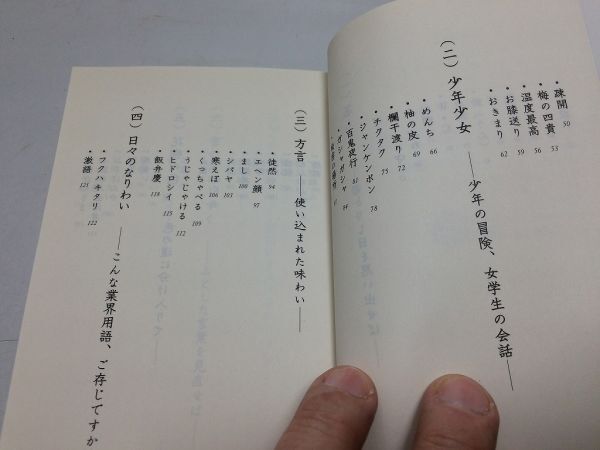 ・疎開 50
・梅の四貴 53
・温度最高 56
・お膝送り 59
・おきまり 62
（二）少年少女 ――少年の冒険、女学生の会話――
・めんち 66
・柚の皮 69
・欄干渡り 72
・チクタク 75
・ジャンケンポン 78
・百鬼夜行 81
・ガシャガシャ 84
（三）方言 ――使い込まれた味わい――
・徒然 94
・エヘン顔 97
・まし 100
・シバヤ 103
・寒えば 106
・くっちゃべる 109
・うじゃじゃける 112
・ヒドロシイ 115
・飯弁慶 118
（四）日々のなりわい ――こんな業界用語、ご存じですか
・フクハキタリ 122
・激語 125